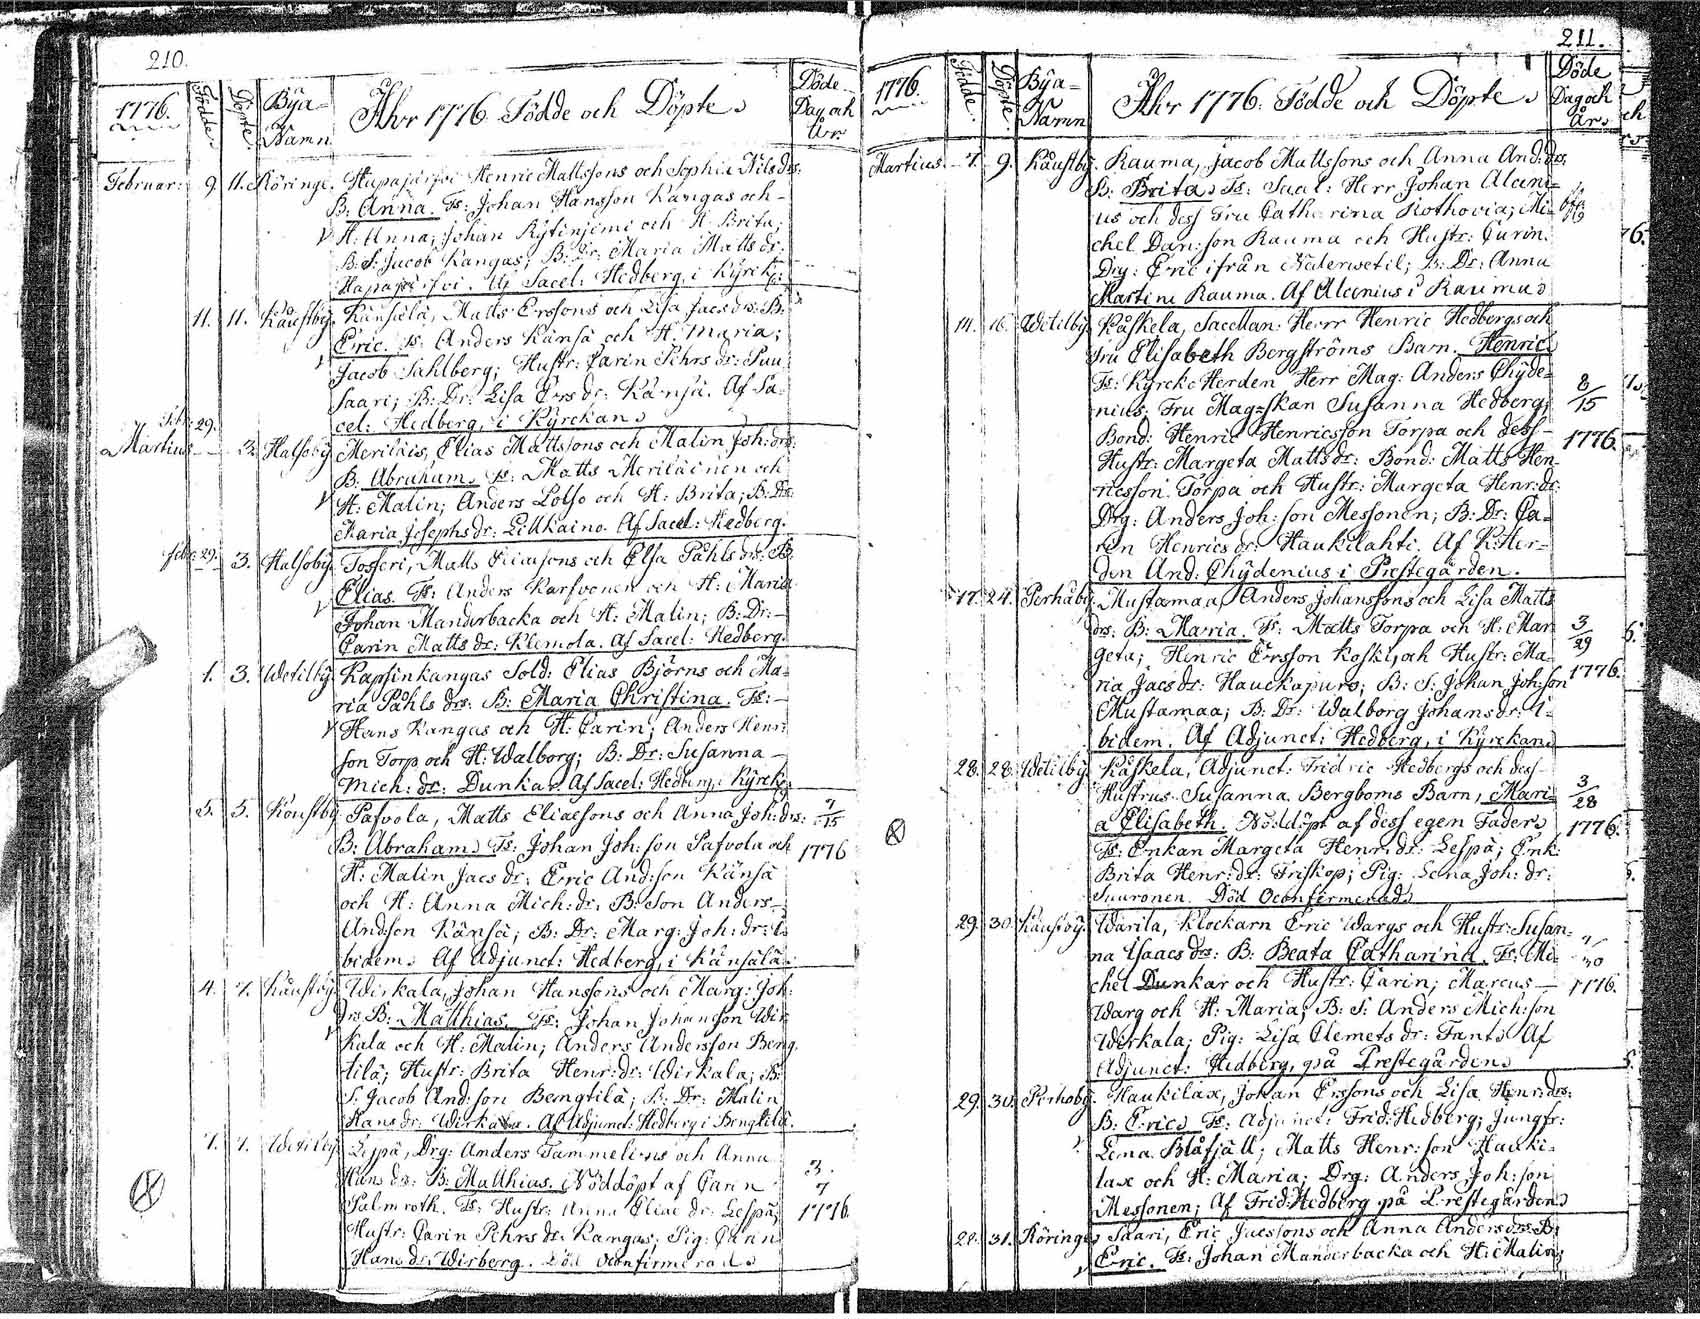 210.
1776. Födde. Döpte. Bÿa-Namn Åhr 1776. Födde och Döpte. Döde Dag och År.
Februar: 9. 11. Röringe. Hapajärfvi Henric Mattssons och Sophia Nils drs:
B: Anna. Fs: Johan Hansson Kangas och
H: Anna; Johan Kytinjemi och H: Brita;
B: S: Jacob Kangas; B: Dr: Maria Matts dr:
Hapajärfvi. Af Sacel: Hedberg, i Kyrck:
11. 11. Kaustby. Känsälä, Matts Erssons och Lisa Jacs drs: B:
Eric. Fs: Anders Känsä och H: Maria;
Jacob Sahlberg; Hustr: Carin Pehrs dr: Puu
saari; B: Dr: Lisa Ers dr: Känsä. Af Sa-
cel: Hedberg, i Kyrckan.
Febr: 29.
Martius 3. Halsoby Meriläis, Elias Mattssons och Malin Joh: drs:
B: Abraham. Fs: Matts Meriläinen och
H: Malin; Anders Polso och H: Brita; B: Dr:
Maria Josephs dr: Lillkaino. Af Sacel: Hedberg.
febr: 29. 3. Halsoby. Tofferi, Matts Ericssons och Elsa Påhls drs: B:
Elias. Fs: Anders Karfvonen och H: Maria
Johan Manderbacka och H: Malin; B: Dr:
Carin Matts dr: Klemola. Af Sacel: Hedberg.
1. 3. Wetilby. Kapsinkangas Sold: Elias Björns och Ma-
ria Påhls drs: B: Maria Christina. Fs:
Hans Kangas och H: Carin; Anders Henr:
son Torp och H: Walborg; B: Dr: Susanna
Mich: dr: Dunkar. Af Sacel: Hedberg, i Kyrck:
5. 5. Kaustby Pafvola, Matts Eliaesons och Anna Joh: drs: 7/15
B: Abraham. Fs: Johan Joh: son Pafvola och 1776
H: Malin Jacs dr; Eric And: son Känsä
och H: Anna Mich: dr; B: Son Anders
And: son Känsä; B: Dr: Marg: Joh: dr: i-
bidem. Af Adjunct: Hedberg, i Känsälä.
4. 7. Kaustby. Wirkala, Johan Hanssons och Marg: Joh:
drs B: Matthias. Fs: Johan Johansson Wir
kala och H: Malin; Anders Andersson Beng
tilä; Hustr: Brita Henr: dr: Wirkala; B:
S: Jacob And: son Bengtilä; B: Dr: Malin
Hans dr: Wirkala. Af Adjunct: Hedberg i Bengtilä.
7. 7. Wetilby Lespä, Drg: Anders Tammelinus och Anna
Hans drs: B: Matthias. Nöddöpt af Carin 3/7
Palmroth. Fs: Hustr: Anna Eliae dr: Lespä; 1776.
Hustr: Carin Pehrs dr: Kangas; Pig: Carin
Hans dr: Wirberg. Död Oconfirmerad.
211.
1776. Födde. Döpte. Bÿa-Namn Åhr 1776. Födde och Döpte. Döde Dag och År.
Martius 7. 9. Kaustby. Rauma, Jacob Mattssons och Anna And: drs:
B: Brita. Fs: Sacel: Herr Johan Alceni-
us och dess Fru Catharina Rothovia; Mi-
chel Dan: son Rauma och Hustr: Carin.
Drg: Eric ifrån Nederwetil; B: Dr: Anna
Martini Rauma. Af Alcenius i Rauma.
14. 16. Wetilby. Kåskela, Sacellan: Herr Henric Hedbergs och
Fru Elisabeth Bergströms Barn. Henric
Fs: Kyrcko Herden Herr Mag: Anders Chyde- 8/15
nius; Fru Mag-skan Susanna Hedberg;
Bond: Henric Henricsson Torpa och dess 1776.
Hustr: Margeta Matts dr: Bond: Matts Hen-
ricsson Torpa och Hustr: Margeta Henr: dr:
Drg: Anders Joh: son Messonen; B: Dr: Ca-
rin Henrics dr: Haukilahti. Af K: Her-
den And: Chydenius i Prestegården.
17. 24. Perhåby. Mustamaa, Anders Johanssons och Lisa Matts
drs: B: Maria. Fs: Matts Torpa och H: Mar 3/29
geta; Henric Ersson Koski, och Hustr: Ma-
ria Jacs dr: Hauckapuro; B: S: Johan Joh: son 1776.
Mustamaa; B: Dr: Walborg Johans dr: i-
bidem. Af Adjunct: Hedberg, i Kyrckan.
28. 28. Wetilby. Kåskela, Adjunct: Fridric Hedbergs och dess
Hustrus Susanna Bergboms Barn, Mari- 3/28
a Elisabeth. Nöddöpt af dess egen Fader. 1776.
Fs: Enkan Margeta Henr: dr: Lespä; Enk:
Brita Henr: dr: Friskop; Pig: Lena Joh: dr:
Suuronen. Död Oconfirmerad.
29. 30. Kaustby. Warila, Klockarn Eric Wargs och Hustr: Susan-
na Isaacs drs: B: Beata Catharina. Fs: Mi-
chel Dunkar och Hustr: Carin; Marcus 1776.
Warg och H: Maria; B: S: Anders Mich: son
Wirkala; Pig: Lisa Clemets dr: Fant. Af
Adjunct: Hedberg, på Prestegården.
29. 30. Perhoby. Haukilax, Johan Erssons och Lisa Henr: drs:
B: Eric. Fs: Adjunct: Frid: Hedberg; Jungfr:
Lena Blåfjäll; Matts Henr: son Hauki-
lax och H: Maria; Drg: Anders Joh: son
Messonen; Af Frid: Hedberg på Prestegården.
28. 31. Röringe. Saari, Eric Jacssons och Anna Anders drs: B:
Eric. Fs: Johan Manderbacka och H: Malin;